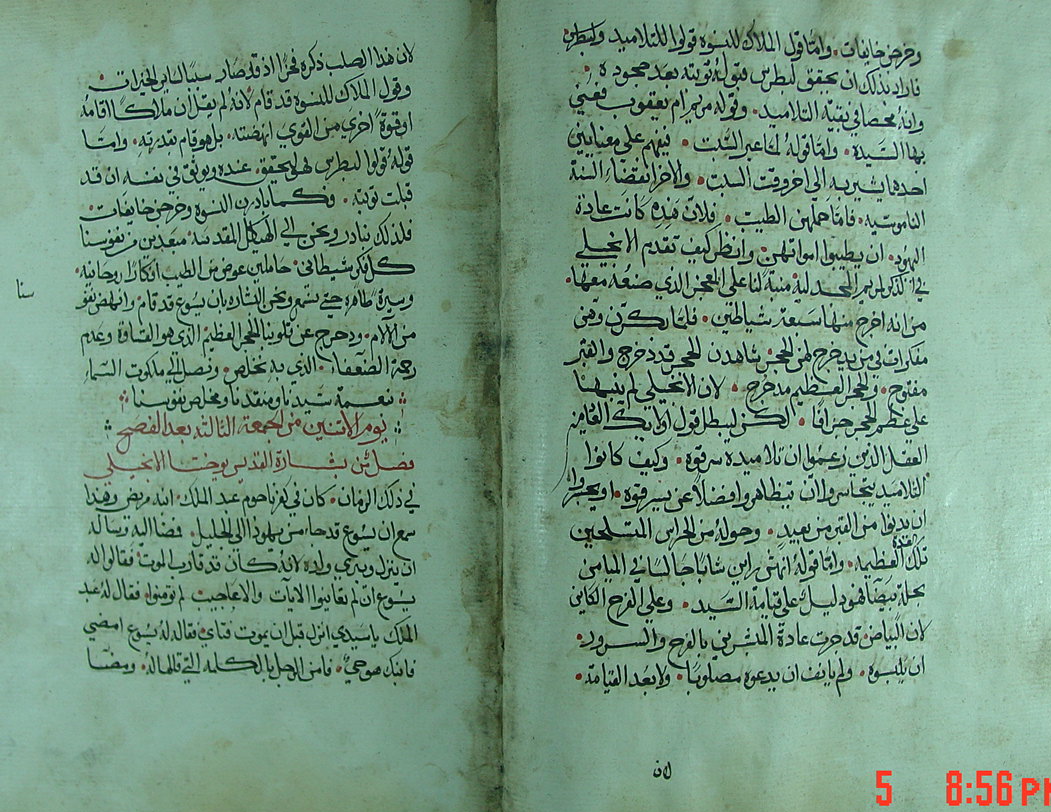 وخرجن خايفات • واما قول الملاك للنسوة قولوا للتلاميذ ولبطرس
فاراد بذلك ان يحقق لبطرس قبول توبته بعد جحوده •
وانه محصا في بقية التلاميذ • وقوله مريم ام يعقوب فيعني
بها السيدة • واما قوله لما عبر السبت • فيفهم على معنايين
احدهما يشير به الى اخر وقت السبت • والاخر انقضاء السنة
الناموسية • فاما حملهن الطيب • فلان هذه كانت عادة
اليهود • ان يطيبوا امواتهن • وانظر كيف تقدم الانجيلي
في ذكر لمريم المجدلية منبهًا لنا على العجز الذي صنعه معها •
من انه اخرج منها سبعة شياطين • فلما بكرن وهن
مفكرات في من يدحرج لهن الحجر • شاهدن للحجر قد دحرج والقبر
مفتوح • والحجر العظيم مدحرج • لان الانجيلي لم ينبهنا
على عظم الحجر جزافًا • لكن ليبطل قول اولايك القايمز
العقل الذين زعموا ان تلاميذه سرقوه • وكيف كانوا
التلاميذ يتجاسروا ان يتظاهروا فضلًا عن يسرقوه • او يجسروا
ان يدنوا من القبر من بعيد • وحوله من الحراس المتسلحين
تلك العدة العظيمة • واما قوله انهن راين شابا جالسا في الميامن
بحلة بيضا فهو دليل على قيامة السيد • وعلى الفرح الكاين
لان البياض قد جرت عادة المبشرين بالفرح والسرور •
ان يلبسوه • ولم يانف ان يدعوه مصلوبًا • ولا بعد القيامة •
لان
لان هذا الصلب ذكره فخرًا اذ قد صار سببًا لساير الخيرات •
وقول الملاك للنسوة قد قام لانه لم يقل ان ملاكًا اقامه
او قوة اخرى من القوي انهضته • بل هو قام بقدرته • واما
قوله قولوا لبطرس فهو ليحقق عنده ويوثق في نفسه ان قد
قبلت توبته • وكما بادرن النسوة وخرجن خايفات •
فلذلك نبادر ونحن الى الهيكل المقدسة مبعدين من نفوسنا
كل فكر شيطاني • حاملين عوض من الطيب افكارًا روحانية •
وسيرة طاهره حتى نسمع ونحن البشاره بان يسوع قد قام • وانهض نفوسنا
من الالام • ودحرج عن قلوبنا الحجر العظيم الذي هو القساوة وعدم
رحمة الضعفاء • الذي به نخلص • ونصل الى ملكوت السماء
بنعمة سيدنا ومنقذنا ومخلص نفوسنا
يوم الاثنين من الجمعة الثالثة بعد الفصح
فصل من بشارة القديس يوحنا الانجيلي
في ذلك الزمان • كان في كفرناحوم عبد الملك • ابنه مريض وهذا
سمع ان يسوع قد جا من يهوذا الى الجليل • فمضا اليه وساله
ان ينزل ويبري ولده لانه كان قد قارب الموت فقال له
يسوع ان لم تعاينوا الايات والاعاجيب لم تومنوا • فقال له عبد
الملك يا سيدي انزل قبل ان يموت فتاي • فقال له يسوع امضي
فابنك هو حيّ • فامن الرجل بالكلمه التي قالها له • ومضا